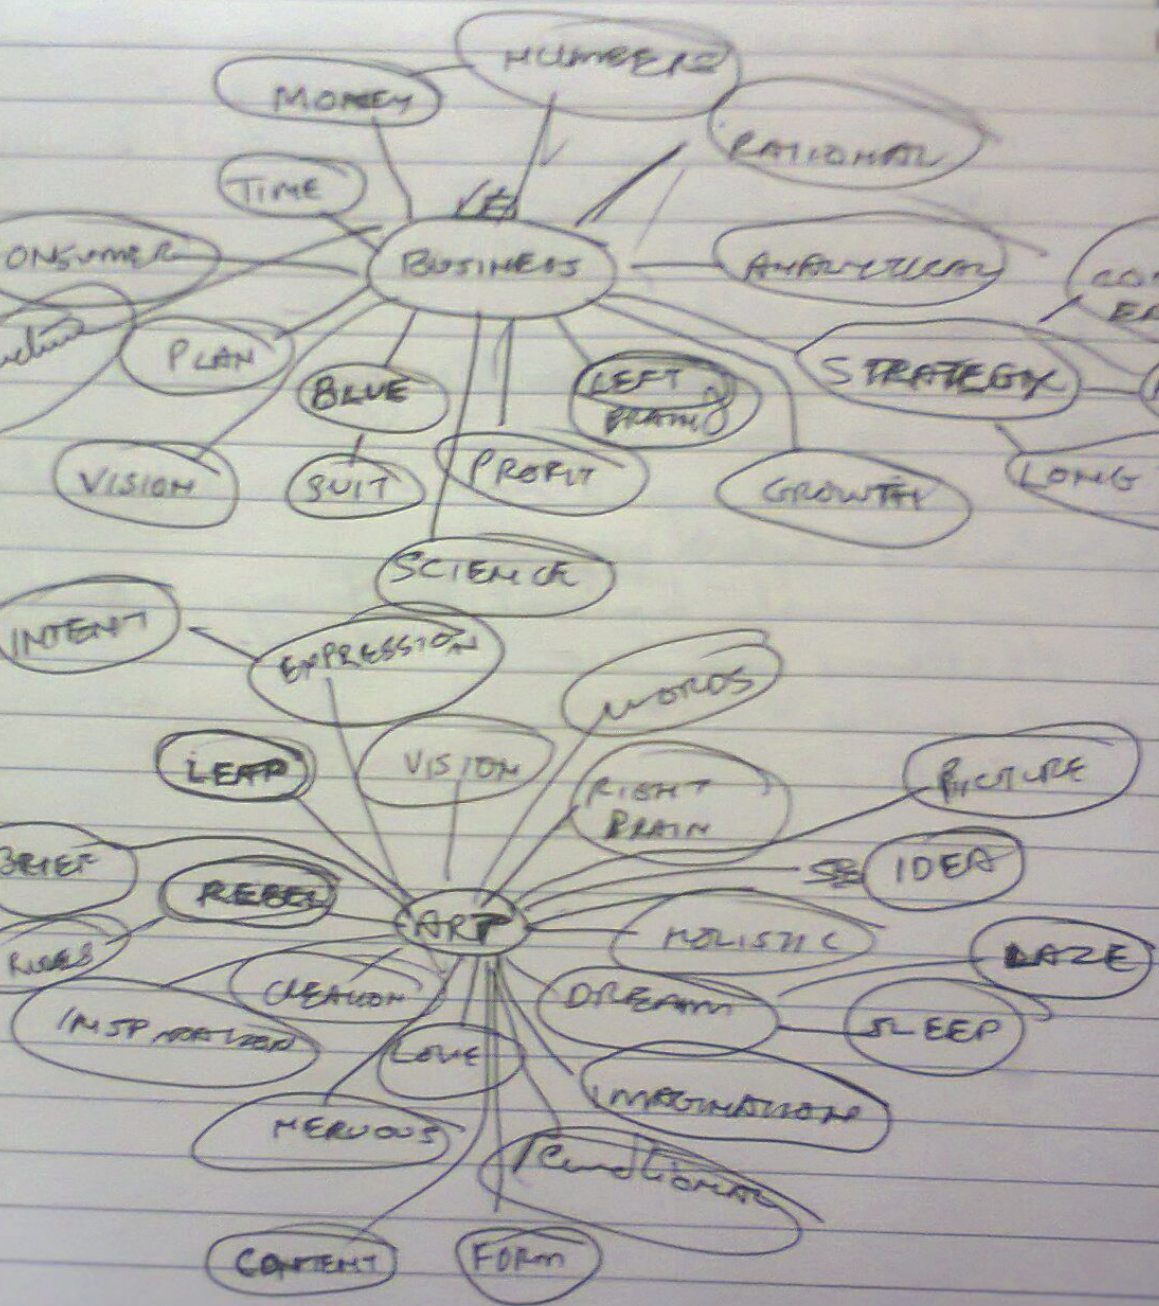 NUMBERS
MONEY
RATIONAL
TIME
ONSUMER
BUSINESS
ANALYTICAL
PLAN
STRATEGY
BLUE
LEFT
BRAIN
VISION
SUIT
PROFIT
GROWTH
LONG
SCIENCE
INTENT
EXPRESSION
WORDS
LEAP
VISION
RIGHT
BRAIN
PICTURE
BRIEF
REBEL
IDEA
ART
HOLISTIC
RULES
DAZE
CREATION
DREAM
INSPIRATION
SLEEP
LOVE
IMAGINATION
NERVOUS
CONTENT
FORM